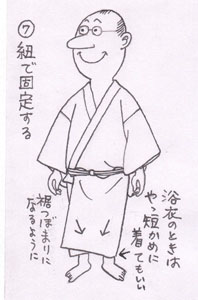 ⑦紐で固定する
浴衣のときは
やゝ短かめに
着てもいい
裾つぼまりに
なるように